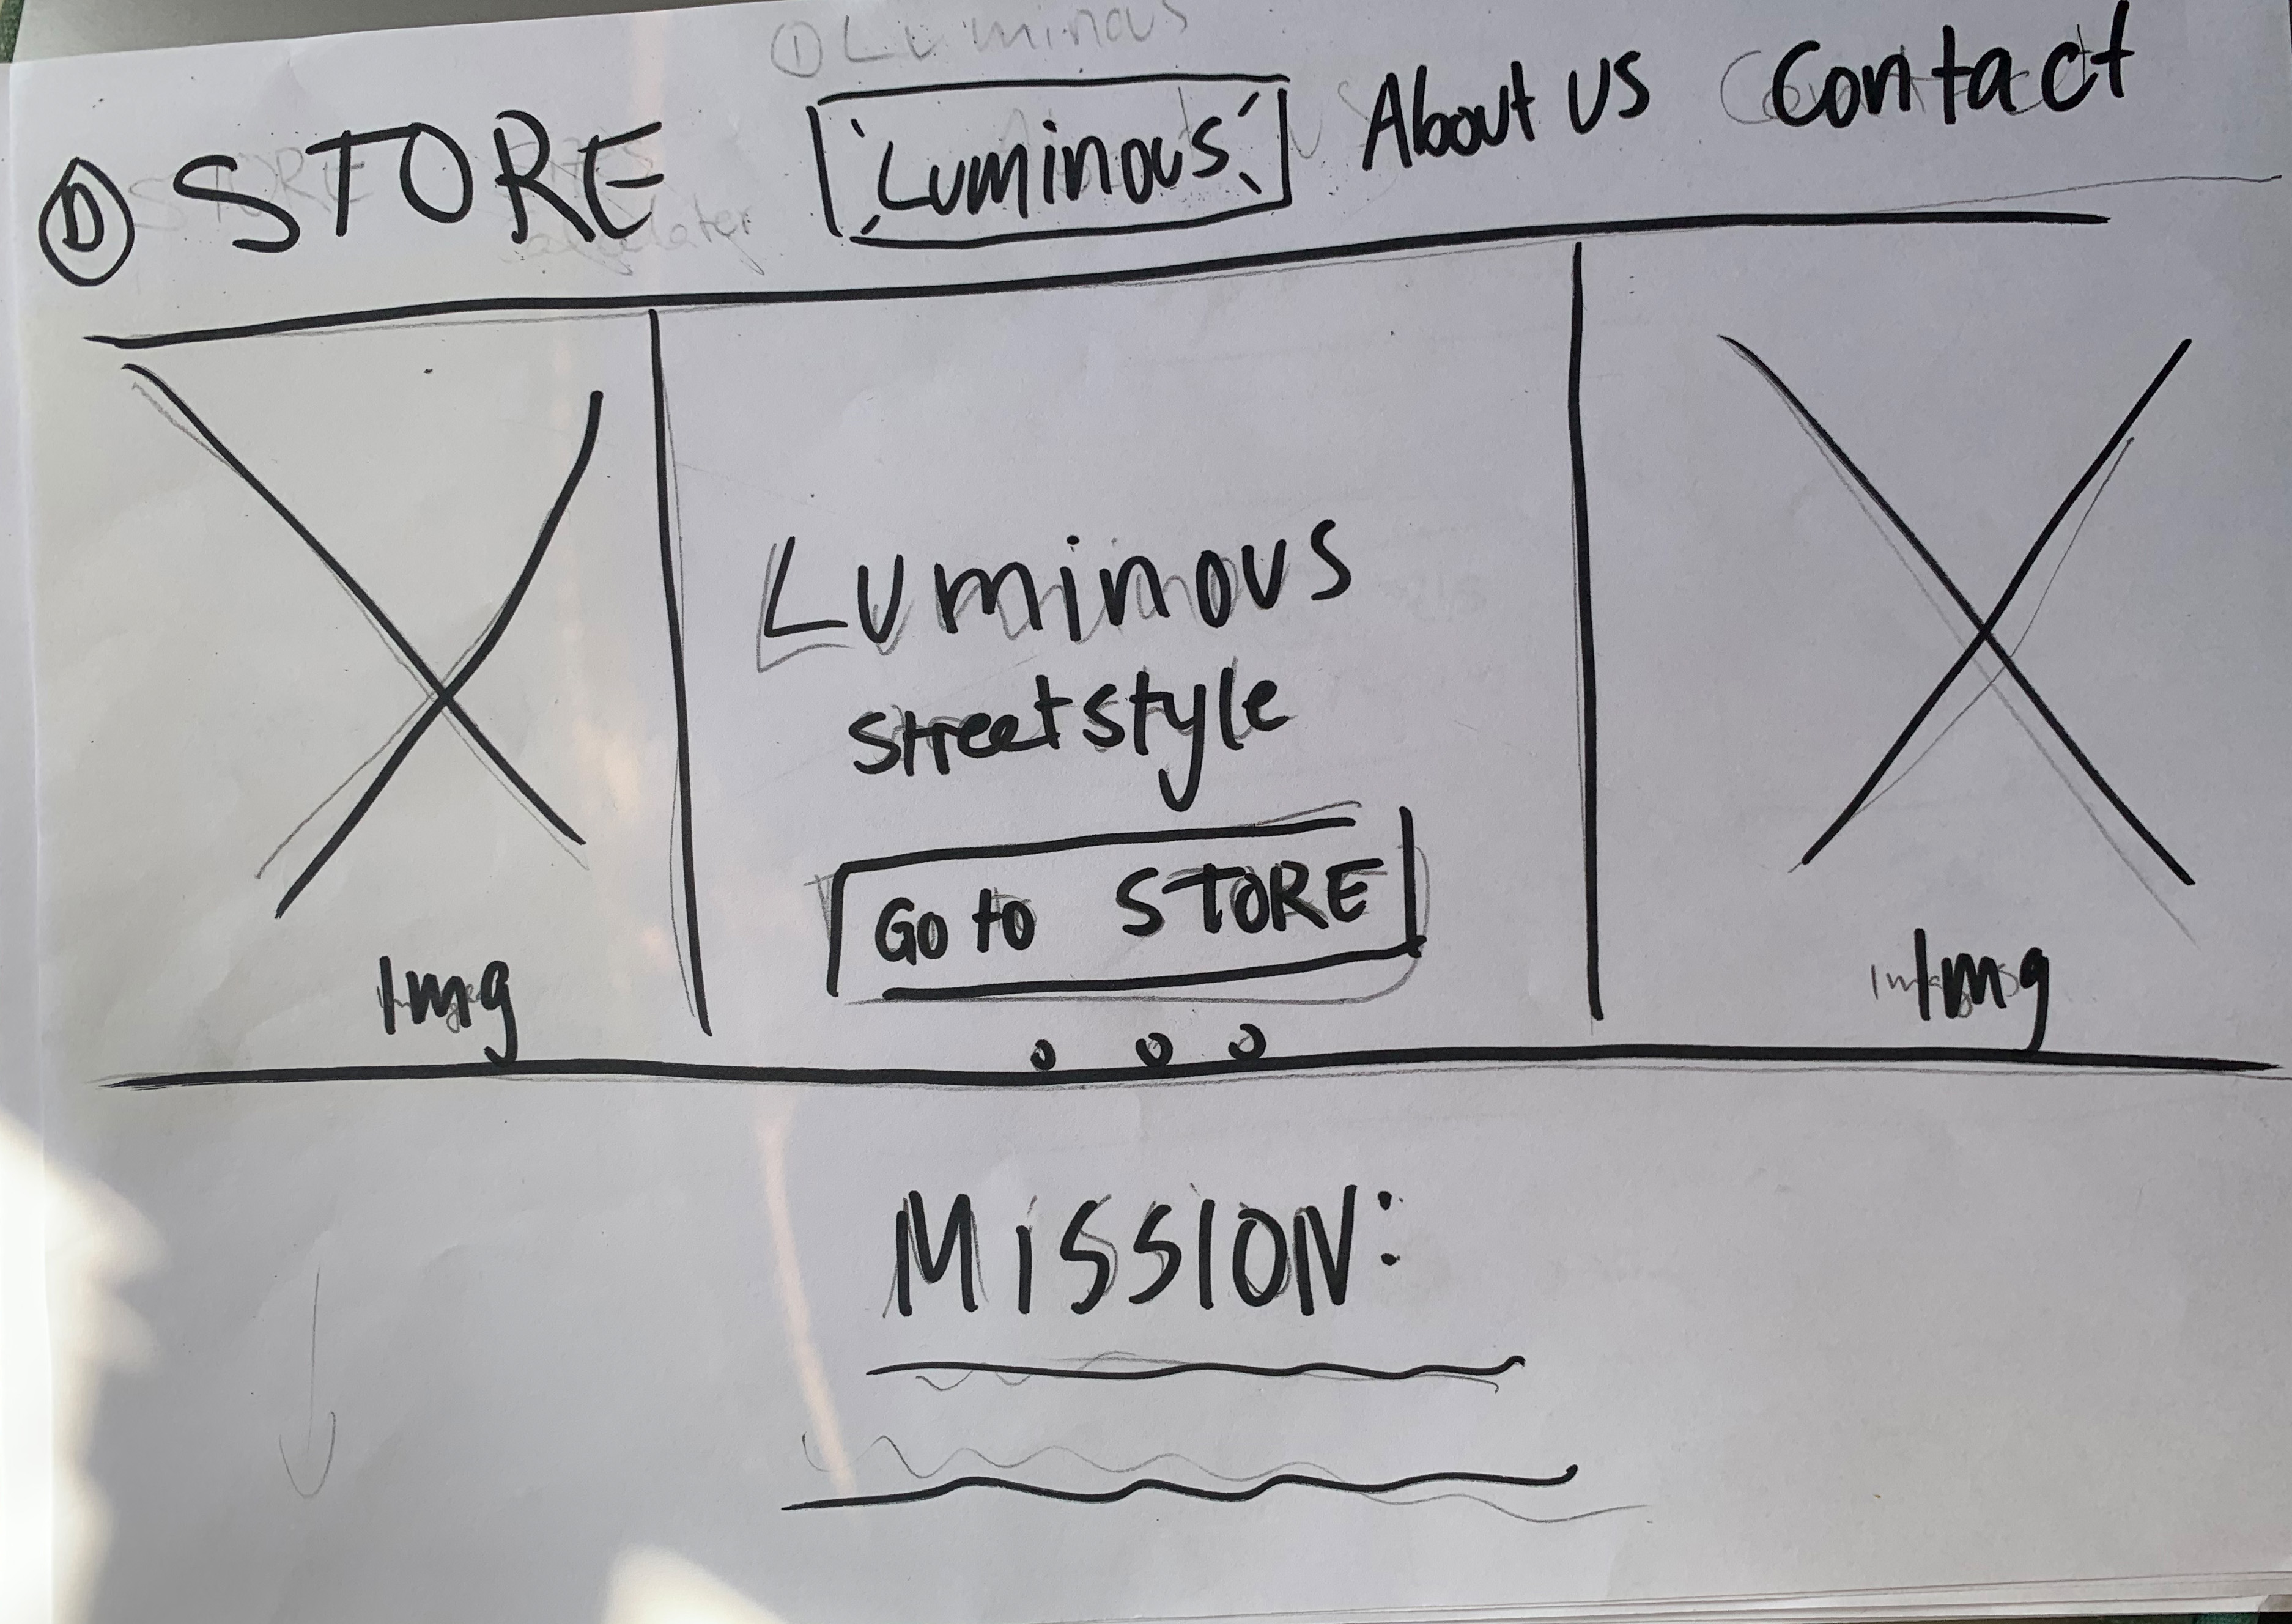 ① Luminous
D STORE Luminous About us Contact
Luminous
streetstyle
Go to STORE
Img
Img
MISSION: